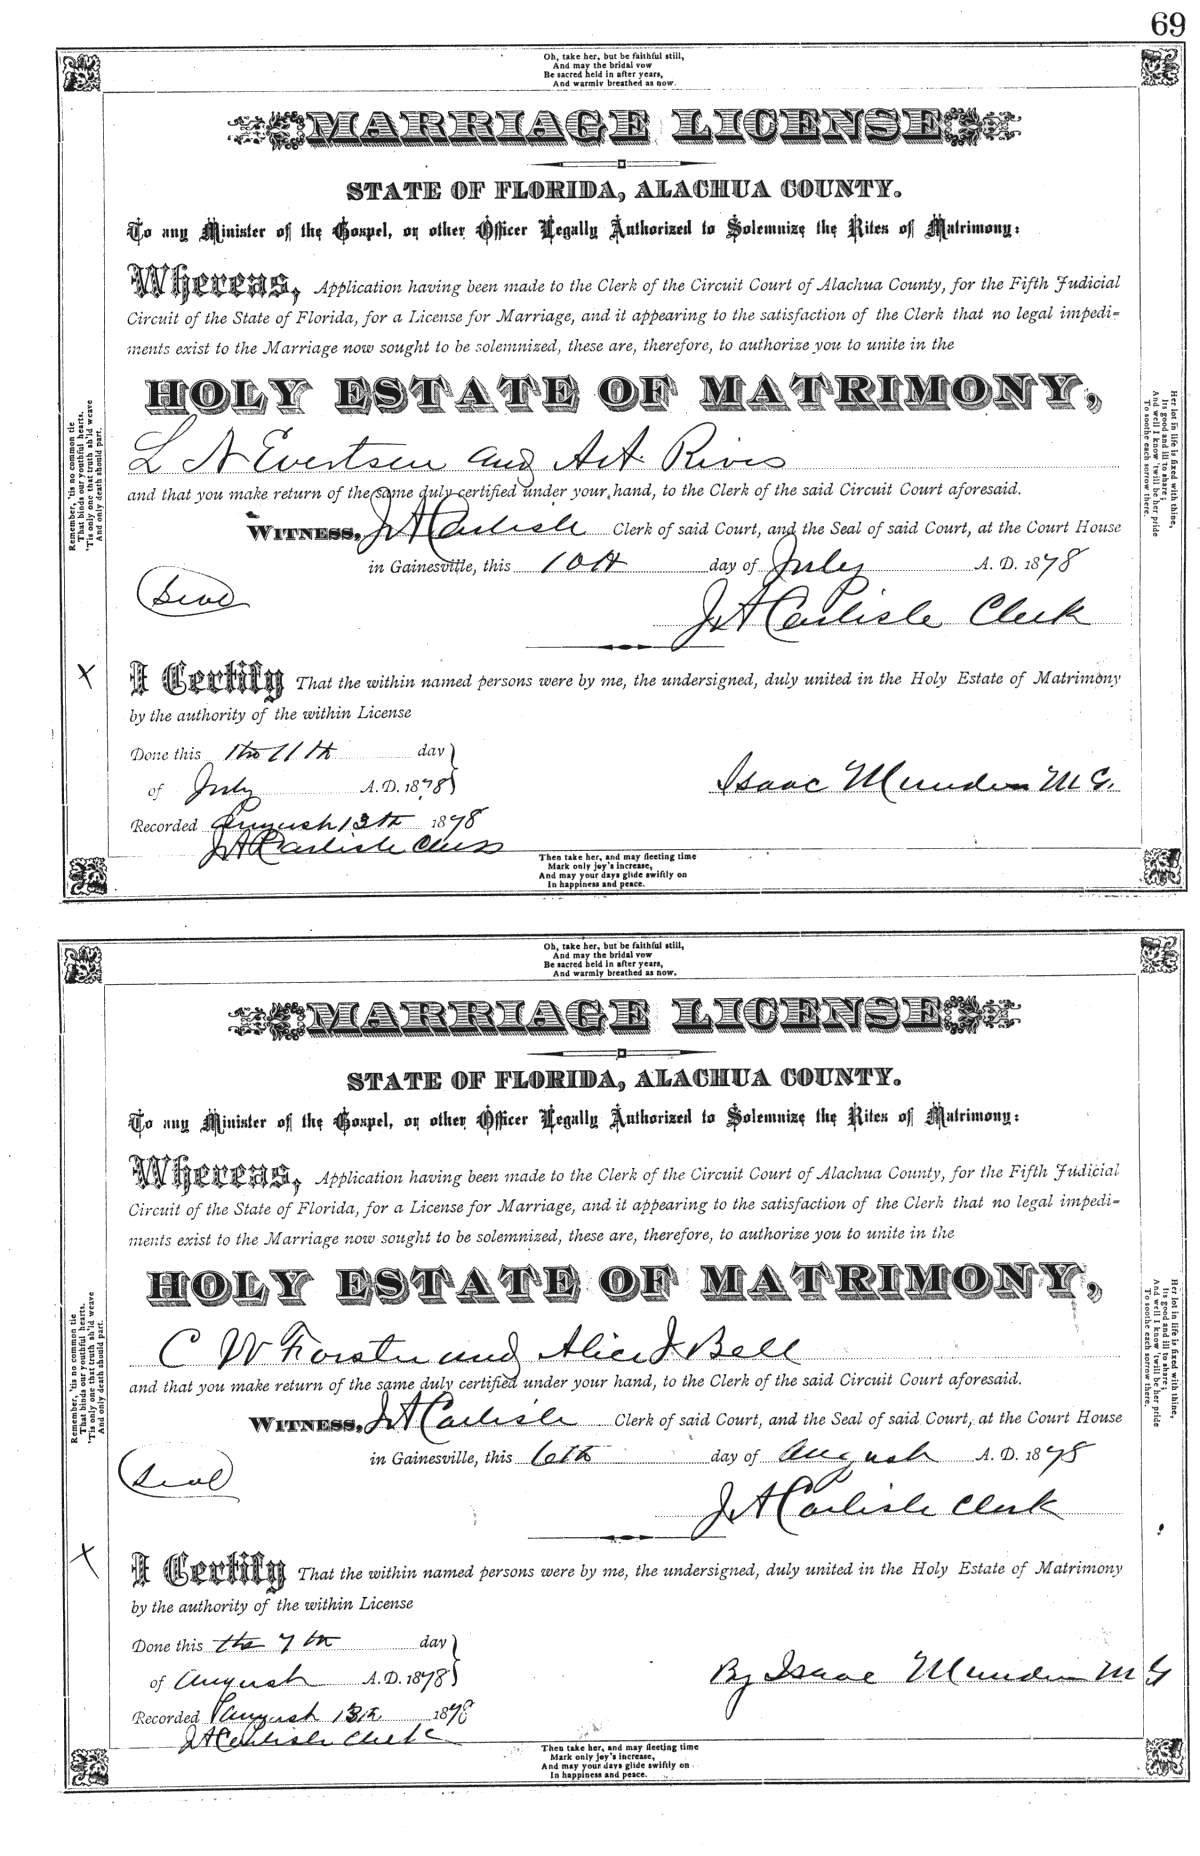 69
Oh, take her, but be faithful still,
And may the bridal vow
Be sacred held in after years,
And warmly breathed as now.
MARRIAGE LICENSE
STATE OF FLORIDA, ALACHUA COUNTY.
To any Minister of the Gospel, or other Officer Legally Authorized to Solemnize the Rites of Matrimony:
Whereas, Application having been made to the Clerk of the Circuit Court of Alachua County, for the Fifth Judicial
Circuit of the State of Florida, for a License for Marriage, and it appearing to the satisfaction of the Clerk that no legal impedi-
ments exist to the Marriage now sought to be solemnized, these are, therefore, to authorize you to unite in the
HOLY ESTATE OF MATRIMONY,
L N Evertsen and A A Rives
and that you make return of the same duly certified under your hand, to the Clerk of the said Circuit Court aforesaid.
WITNESS, J A Carlisle Clerk of said Court, and the Seal of said Court, at the Court House
in Gainesville, this 10th day of July A. D. 1878
Seal
J A Carlisle Clerk
X
I Certify That the within named persons were by me, the undersigned, duly united in the Holy Estate of Matrimony
by the authority of the within License
Done this the 11th day
of July A.D. 1878
Isaac Munden M G.
Recorded August 13th 1878
J A Carlisle Clerk
Then take her, and may fleeting time
Mark only joy's increase,
And may your days glide swiftly on
In happiness and peace.
Remember, 'tis no common tie
That binds our youthful hearts,
'Tis only one that truth sh'ld weave
And only death should part.
Her lot in life is fixed with thine,
Its good and ill to share;
And well I know 'twill be her pride
To soothe each sorrow there.
Oh, take her, but be faithful still,
And may the bridal vow
Be sacred held in after years,
And warmly breathed as now.
MARRIAGE LICENSE
STATE OF FLORIDA, ALACHUA COUNTY.
To any Minister of the Gospel, or other Officer Legally Authorized to Solemnize the Rites of Matrimony:
Whereas, Application having been made to the Clerk of the Circuit Court of Alachua County, for the Fifth Judicial
Circuit of the State of Florida, for a License for Marriage, and it appearing to the satisfaction of the Clerk that no legal impedi-
ments exist to the Marriage now sought to be solemnized, these are, therefore, to authorize you to unite in the
HOLY ESTATE OF MATRIMONY,
C W Forster and Alice J Bell
and that you make return of the same duly certified under your hand, to the Clerk of the said Circuit Court aforesaid.
WITNESS, J A Carlisle Clerk of said Court, and the Seal of said Court, at the Court House
in Gainesville, this 6th day of August A. D. 1878
Seal
J A Carlisle Clerk
X
I Certify That the within named persons were by me, the undersigned, duly united in the Holy Estate of Matrimony
by the authority of the within License
Done this the 7th day
of August A.D. 1878
By Isaac Munden M G
Recorded August 13th 1878
J A Carlisle Clerk
Then take her, and may fleeting time
Mark only joy's increase,
And may your days glide swiftly on
In happiness and peace.
Remember, 'tis no common tie
That binds our youthful hearts,
'Tis only one that truth sh'ld weave
And only death should part.
Her lot in life is fixed with thine,
Its good and ill to share;
And well I know 'twill be her pride
To soothe each sorrow there.